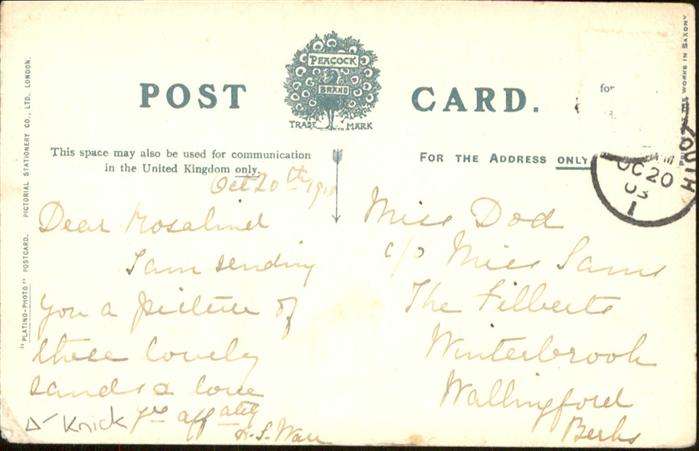 POST CARD.
PEACOCK
BRAND
TRADE MARK
This space may also be used for communication
in the United Kingdom only.
FOR THE ADDRESS ONLY
Oct 20th
Dear Rosalind
I am sending
you a picture of
these lovely
sands & love
yrs affately
Knick
Miss Dod
c/o Miss Sams
The Filberts
Winterbrook
Wallingford
Berks
OC 20
03
1
for
"PLATINO-PHOTO" POSTCARD. PICTORIAL STATIONERY CO., LTD. LONDON.
WORKS IN SAXONY